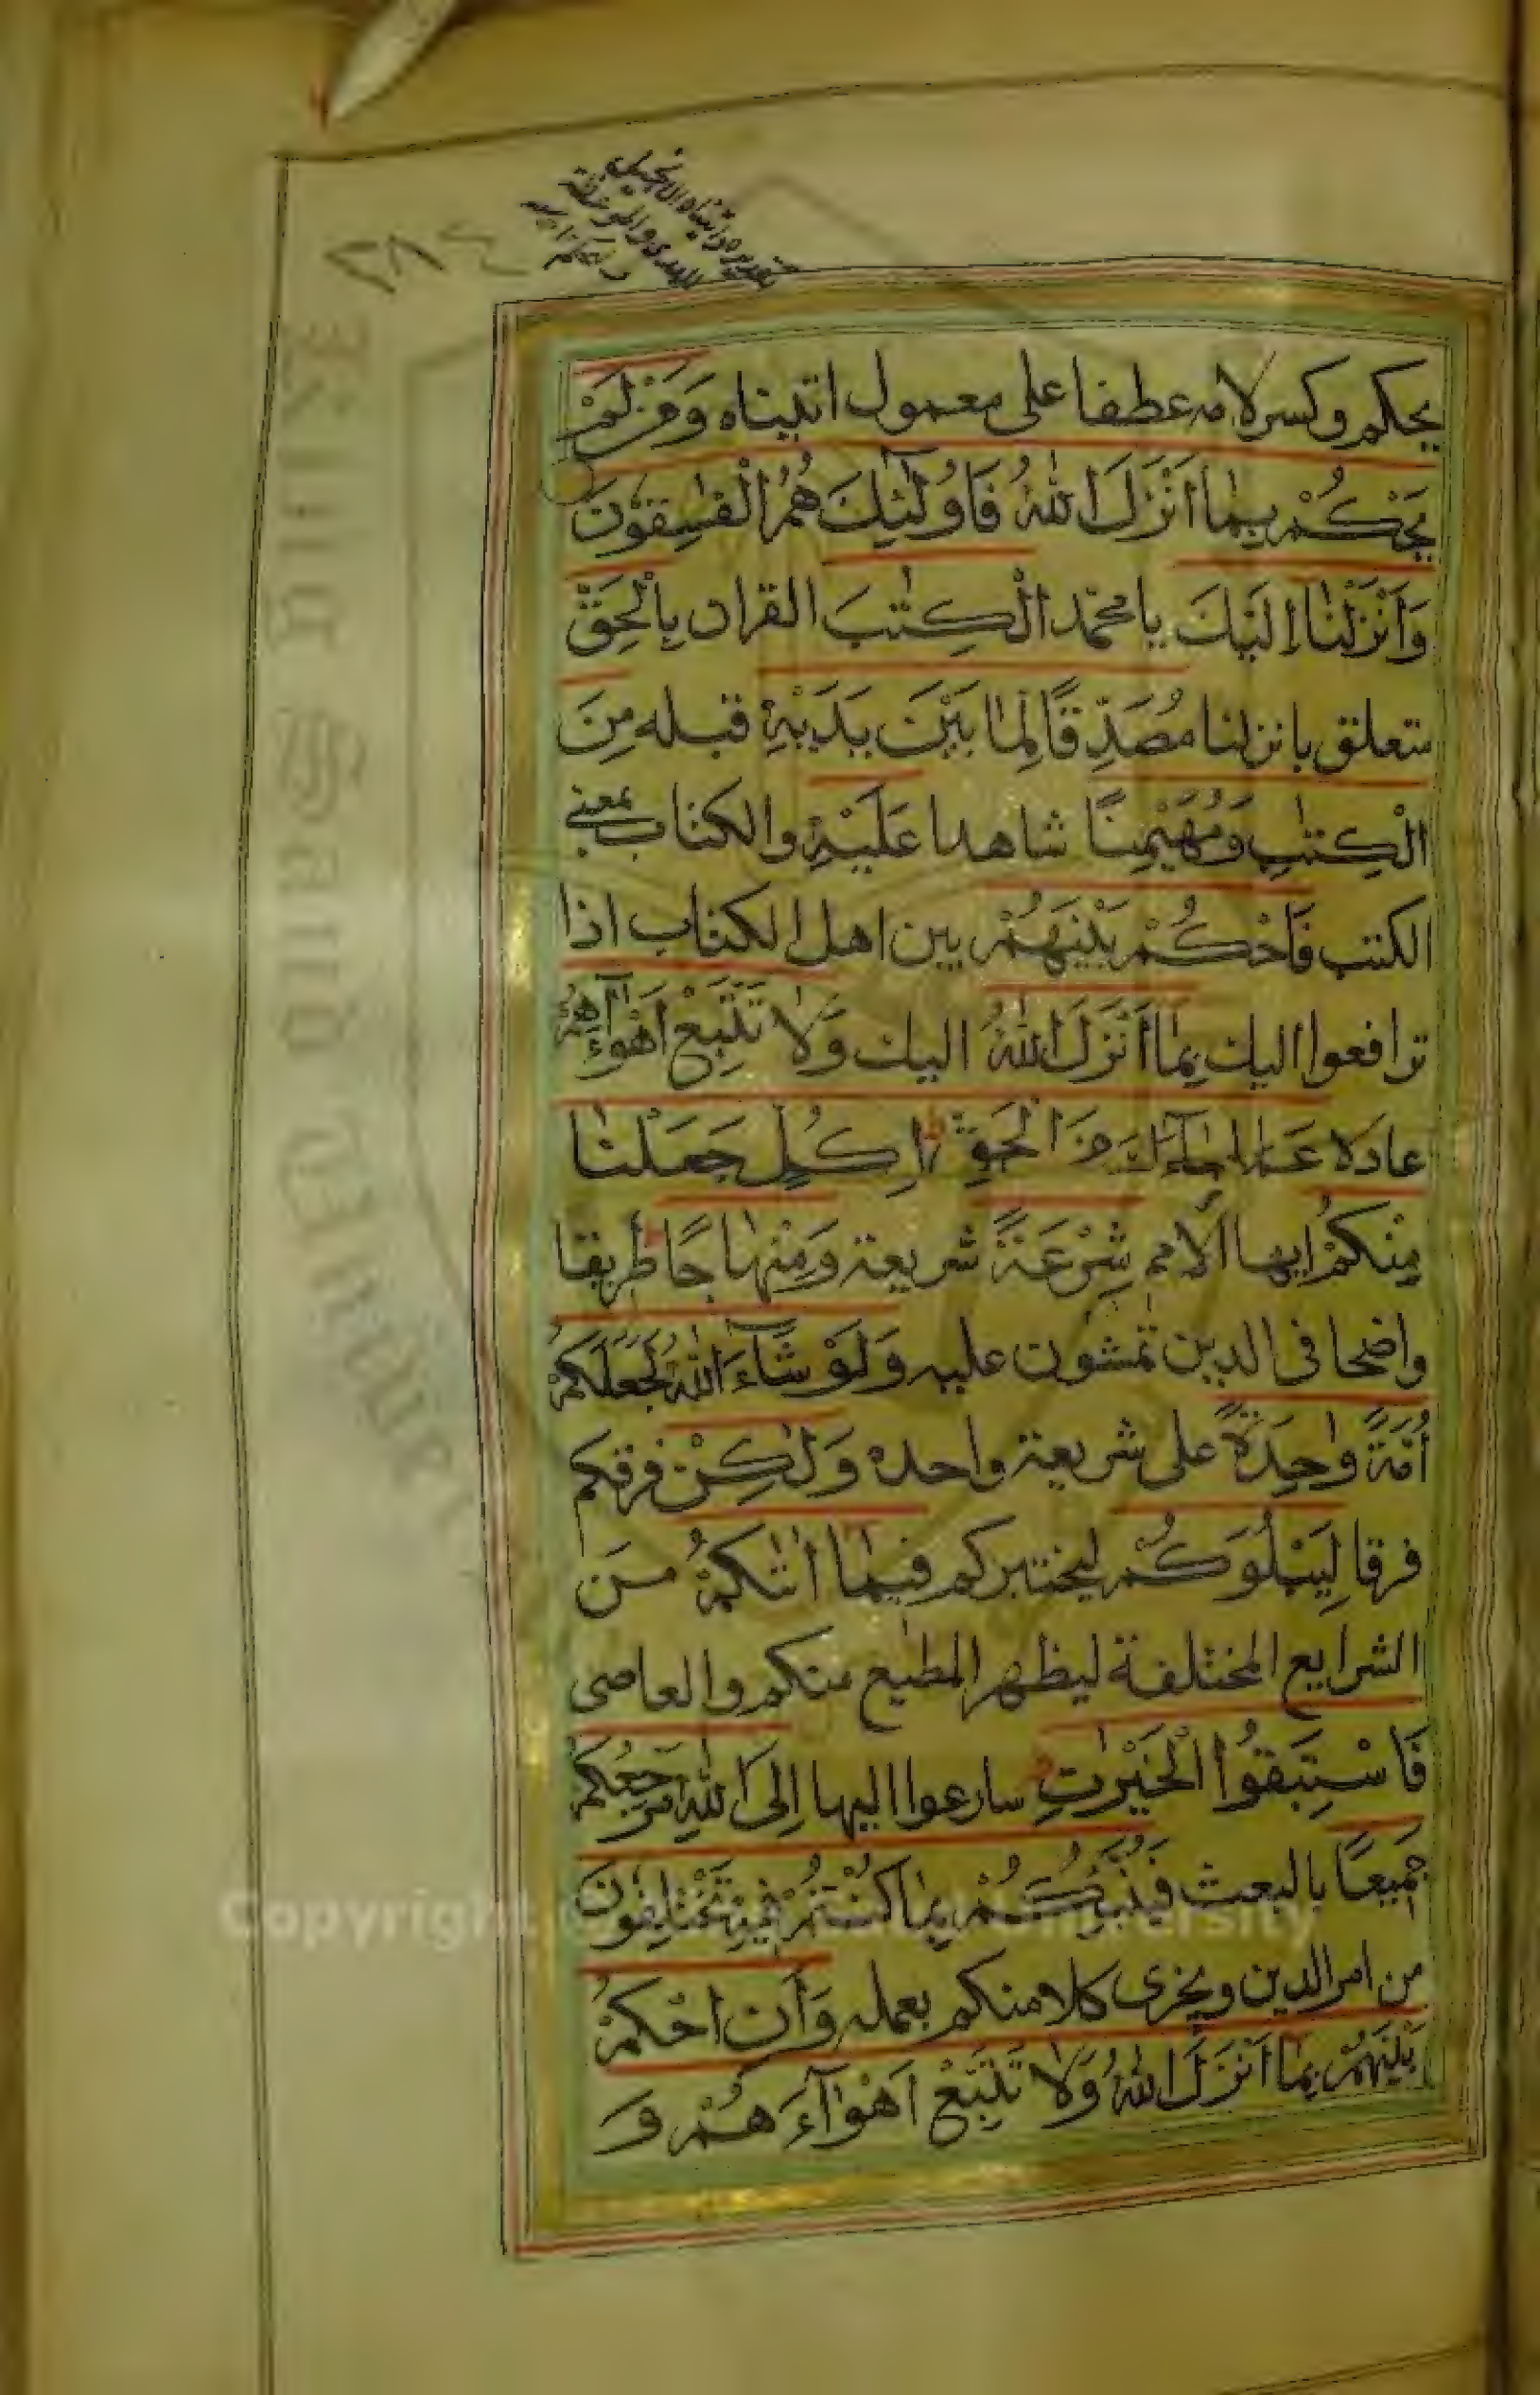 ٢٨٤
تقديره واتيناه الانجيل
للهدى والموعظة
يحكم وكسر لامه عطفا على معمول اتيناه وَمَنْ لَمْ
يَحْكُمْ بِمٰا اَنْزَلَ اللهُ فَاُولٰٓئِكَ هُمُ الْفٰسِقُوْنَ
وَاَنْزَلْنٰا اِلَيْكَ يا محمد الْكِتٰبَ القران بِالْحَقِّ
متعلق بانزلنا مُصَدِّقًا لِمٰا بَيْنَ يَدَيْهِ قبله مِنَ
الْكِتٰبِ وَمُهَيْمِنًا شاهدا عَلَيْهِ والكتاب بمعنى
الكتب فَاحْكُمْ بَيْنَهُمْ بين اهل الكتاب اذا
ترافعوا اليك بِمٰا اَنْزَلَ اللهُ اليك وَلٰا تَتَّبِعْ اَهْوٰآءَهُمْ
عادلا عَمّٰا جٰآءَكَ مِنَ الْحَقِّ لِكُلٍّ جَعَلْنٰا
مِنْكُمْ ايها الامم شِرْعَةً شريعة وَمِنْهٰاجًا طريقا
واضحا فى الدين تمشون عليه وَلَوْ شٰآءَ اللهُ لَجَعَلَكُمْ
اُمَّةً وٰحِدَةً على شريعة واحدة وَلٰكِنْ فرقكم
فرقا لِيَبْلُوَكُمْ ليختبركم فيمٰا اٰتٰىكُمْ من
الشرايع المختلفة ليظهر المطيع منكم والعاصى
فَاسْتَبِقُوا الْخَيْرٰتِ سارعوا اليها اِلَى اللهِ مَرْجِعُكُمْ
جَمِيعًا بالبعث فَيُنَبِّئُكُمْ بِمٰا كُنْتُمْ فِيهِ تَخْتَلِفُونَ
من امر الدين ويجزى كلا منكم بعمله وَاَنِ احْكُمْ
بَيْنَهُمْ بِمٰا اَنْزَلَ اللهُ وَلٰا تَتَّبِعْ اَهْوٰآءَهُمْ وَ
King Saud University
Copyright © King Saud University